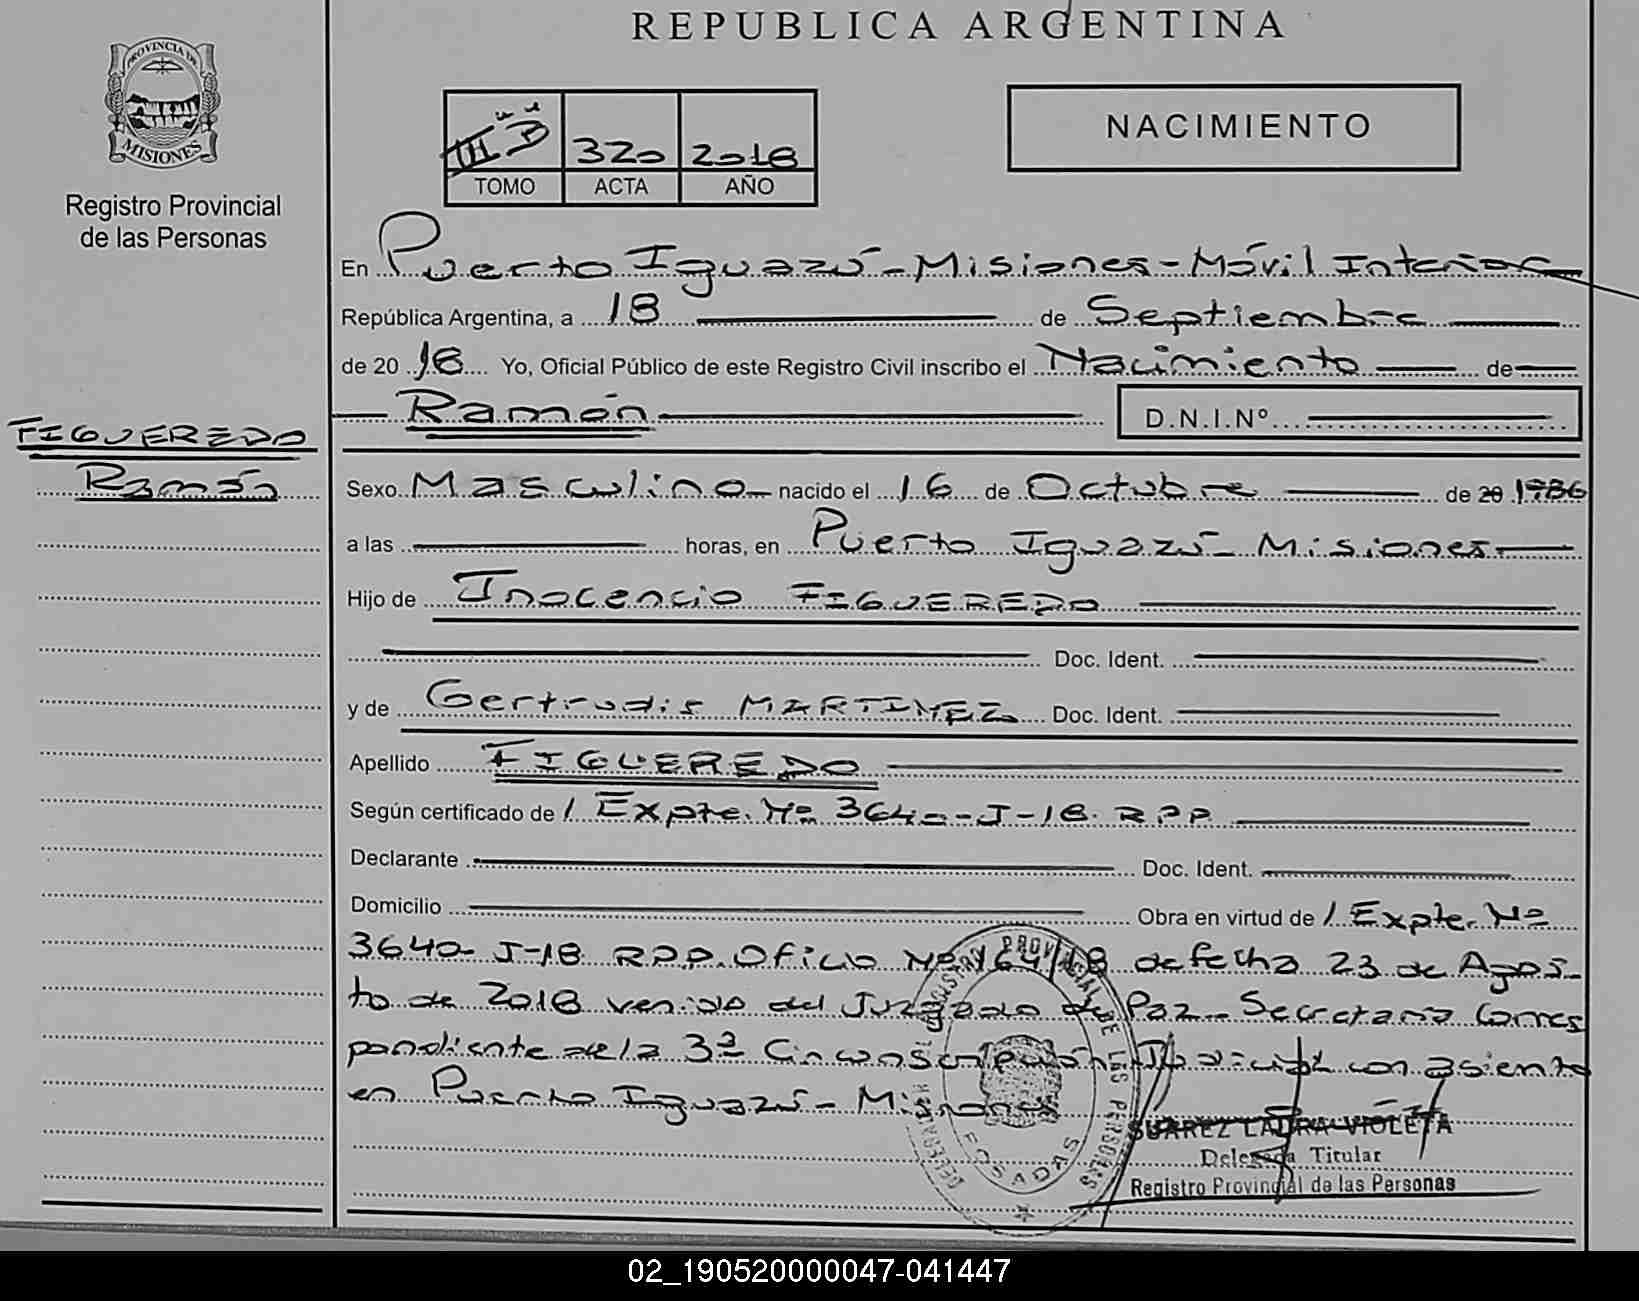 REPUBLICA ARGENTINA
PROVINCIA DE
MISIONES
Registro Provincial
de las Personas
III "B" 320 2018
TOMO ACTA AÑO
NACIMIENTO
En Puerto Iguazú - Misiones - Móvil Interior
República Argentina, a 18 de Septiembre
de 2018 Yo, Oficial Público de este Registro Civil inscribo el Nacimiento de
Ramón D.N.I.Nº
FIGUEREDO
Ramón
Sexo Masculino nacido el 16 de Octubre de 20 1986
a las horas, en Puerto Iguazú - Misiones
Hijo de Inocencio FIGUEREDO
Doc. Ident.
y de Gertrudis MARTINEZ Doc. Ident.
Apellido FIGUEREDO
Según certificado de / Expte. Nº 3640-J-18. RPP
Declarante Doc. Ident.
Domicilio Obra en virtud de / Expte. Nº
3640-J-18 RPP. Oficio Nº 164/18 de fecha 23 de Agos-
to de 2018 venido del Juzgado de Paz - Secretaria Corres
pondiente de la 3ª Circunscripción Judicial con asiento
en Puerto Iguazú - Misiones
REGISTRO PROVINCIAL DE LAS PERSONAS
POSADAS
SUAREZ LAURA VIOLETA
Delegada Titular
Registro Provincial de las Personas
02_190520000047-041447